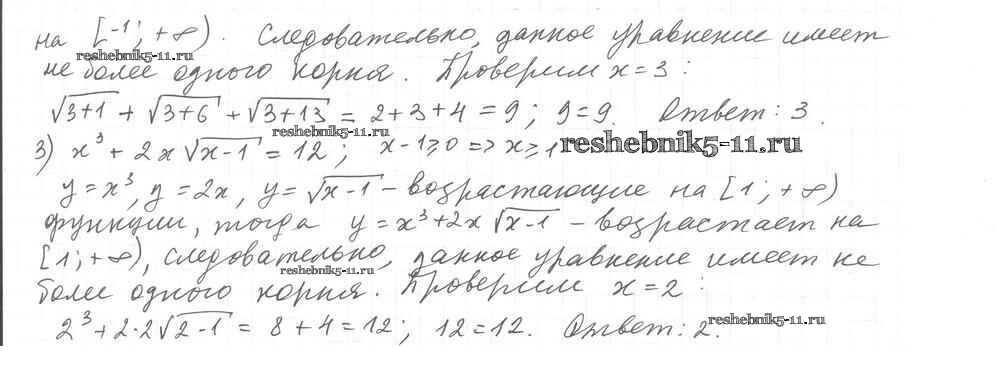 на [-1; +∞). Следовательно, данное уравнение имеет
reshebnik5-11.ru
не более одного корня. Проверим x=3:
√(3+1) + √(3+6) + √(3+13) = 2+3+4 = 9; 9=9. Ответ: 3.
reshebnik5-11.ru
3) x³ + 2x√(x-1) = 12; x-1≥0 => x≥1 reshebnik5-11.ru
y=x³, y=2x, y=√(x-1) - возрастающие на [1; +∞)
функции, тогда y=x³+2x√(x-1) - возрастает на
[1; +∞), следовательно, данное уравнение имеет не
reshebnik5-11.ru
более одного корня. Проверим x=2:
2³+2·2√(2-1) = 8+4=12; 12=12. Ответ: 2.
reshebnik5-11.ru